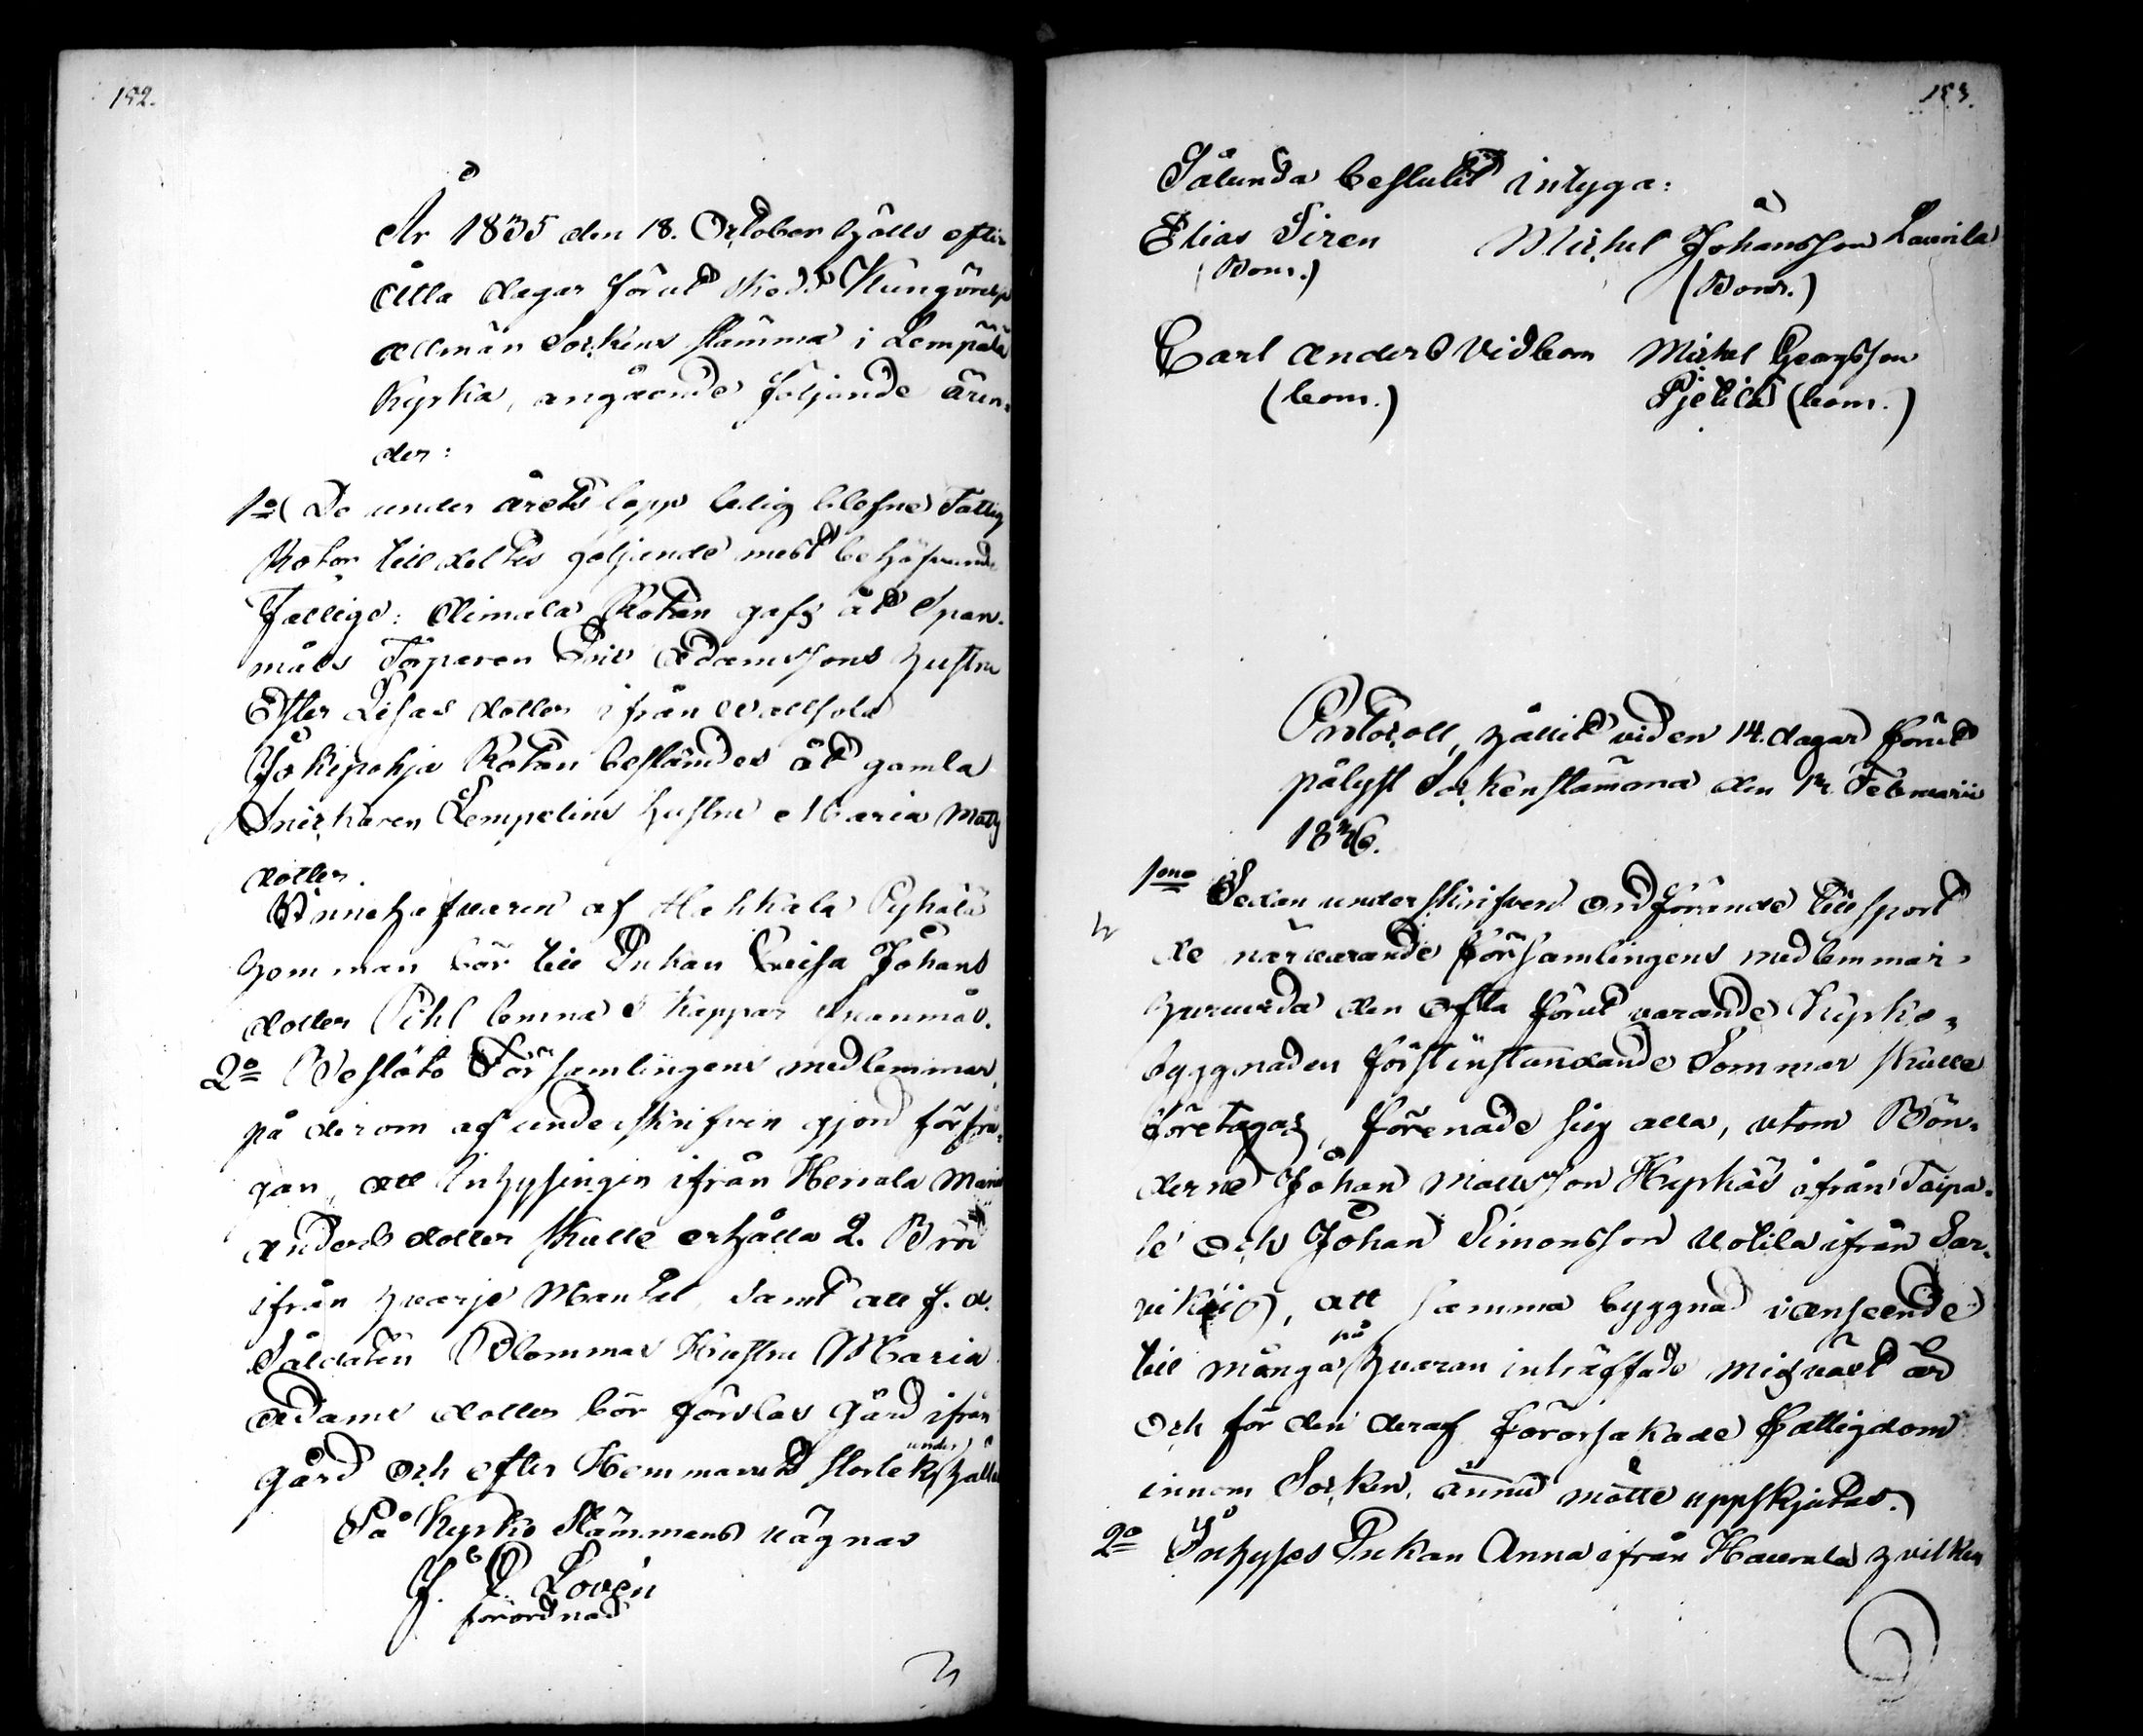 192.
År 1835 den 18. October hölls efter
åtta dagar förut skedd Kungörelse
allmän Sockene stämma i Lempäälä
Kyrka, angående följande ären-
der:
1o De under årets lopp ledig blefne Fattig
Rotor tilldeltes följande mest behöfvande
Fattige: Aimala Rotan gafs åt Span-
måls Torparen Eric Adamssons hustru
Ester Lisas dotter ifrån
Jokipohja Rotan bestämdes åt gamla
Snickaren Lempelins hustru Maria Matts
dotter.
Innehafvaren af Hakkala Pyhälä
hemman bör till Enkan Lovisa Johans
dotter Pihl lemna 8 kappar Spanmål.
2o Beslöto Församlingens medlemmar,
på derom af underskrifven gjord förfrå-
gan, att Inhysingen ifrån Herrala Maria
Anders dotter skulle erhålla 2. Bröd
ifrån hvarje Mantal, samt att f. d.
Soldaten Blommas Hustru Maria
Adams dotter bör förslas Gård ifrån
under
gård och efter Hemmanets storlek hålla
På Kyrko Stämmans vägnar
J. E. Lovén
förordnad
193.
Sålunda beslutit intyga:
Elias Siren Michel Johansson Laurila
(Bom.) (Bom.)
Carl Anders Vidbom Michel Georgsson
(bom.) Pjetilä (bom.)
Protocoll, hållit vid en 14. dagar förut
pålyst Sockenstämma den Februarii
1836.
1mo Sedan underskrifven ordförande tillspord
de närvarande församlingens medlemmar,
huruvida den ofta förut varande Kyrko-
byggnaden förstinstundande Sommar skulle
företagas, förenade sig alla, utom Bön-
derne Johan Mattsson Kyrkäs ifrån Taipa-
le och Johan Simonsson Uotila ifrån Sar-
vikko, att samma byggnad i anseende
på
till många hvaran inträffade missväxt år
och för den deraf förorsakade Fattigdom
innom Socken, ännu måtte uppskjutas.
2o Inhyses Enkan Anna ifrån Haurala hvilken